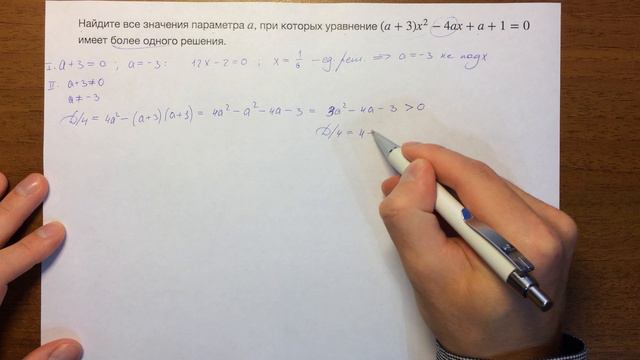 Найдите все значения параметра a, при которых уравнение (a + 3)x² − 4ax + a + 1 = 0
имеет более одного решения.
I. a+3=0 ; a=-3 : 12x-2=0 ; x = 1/6 - ед. реш. => a=-3 не подх
II. a+3≠0
a≠-3
D/4 = 4a² - (a+3)(a+3) = 4a² - a² - 4a - 3 = 3a² - 4a - 3 > 0
D/4 = 4